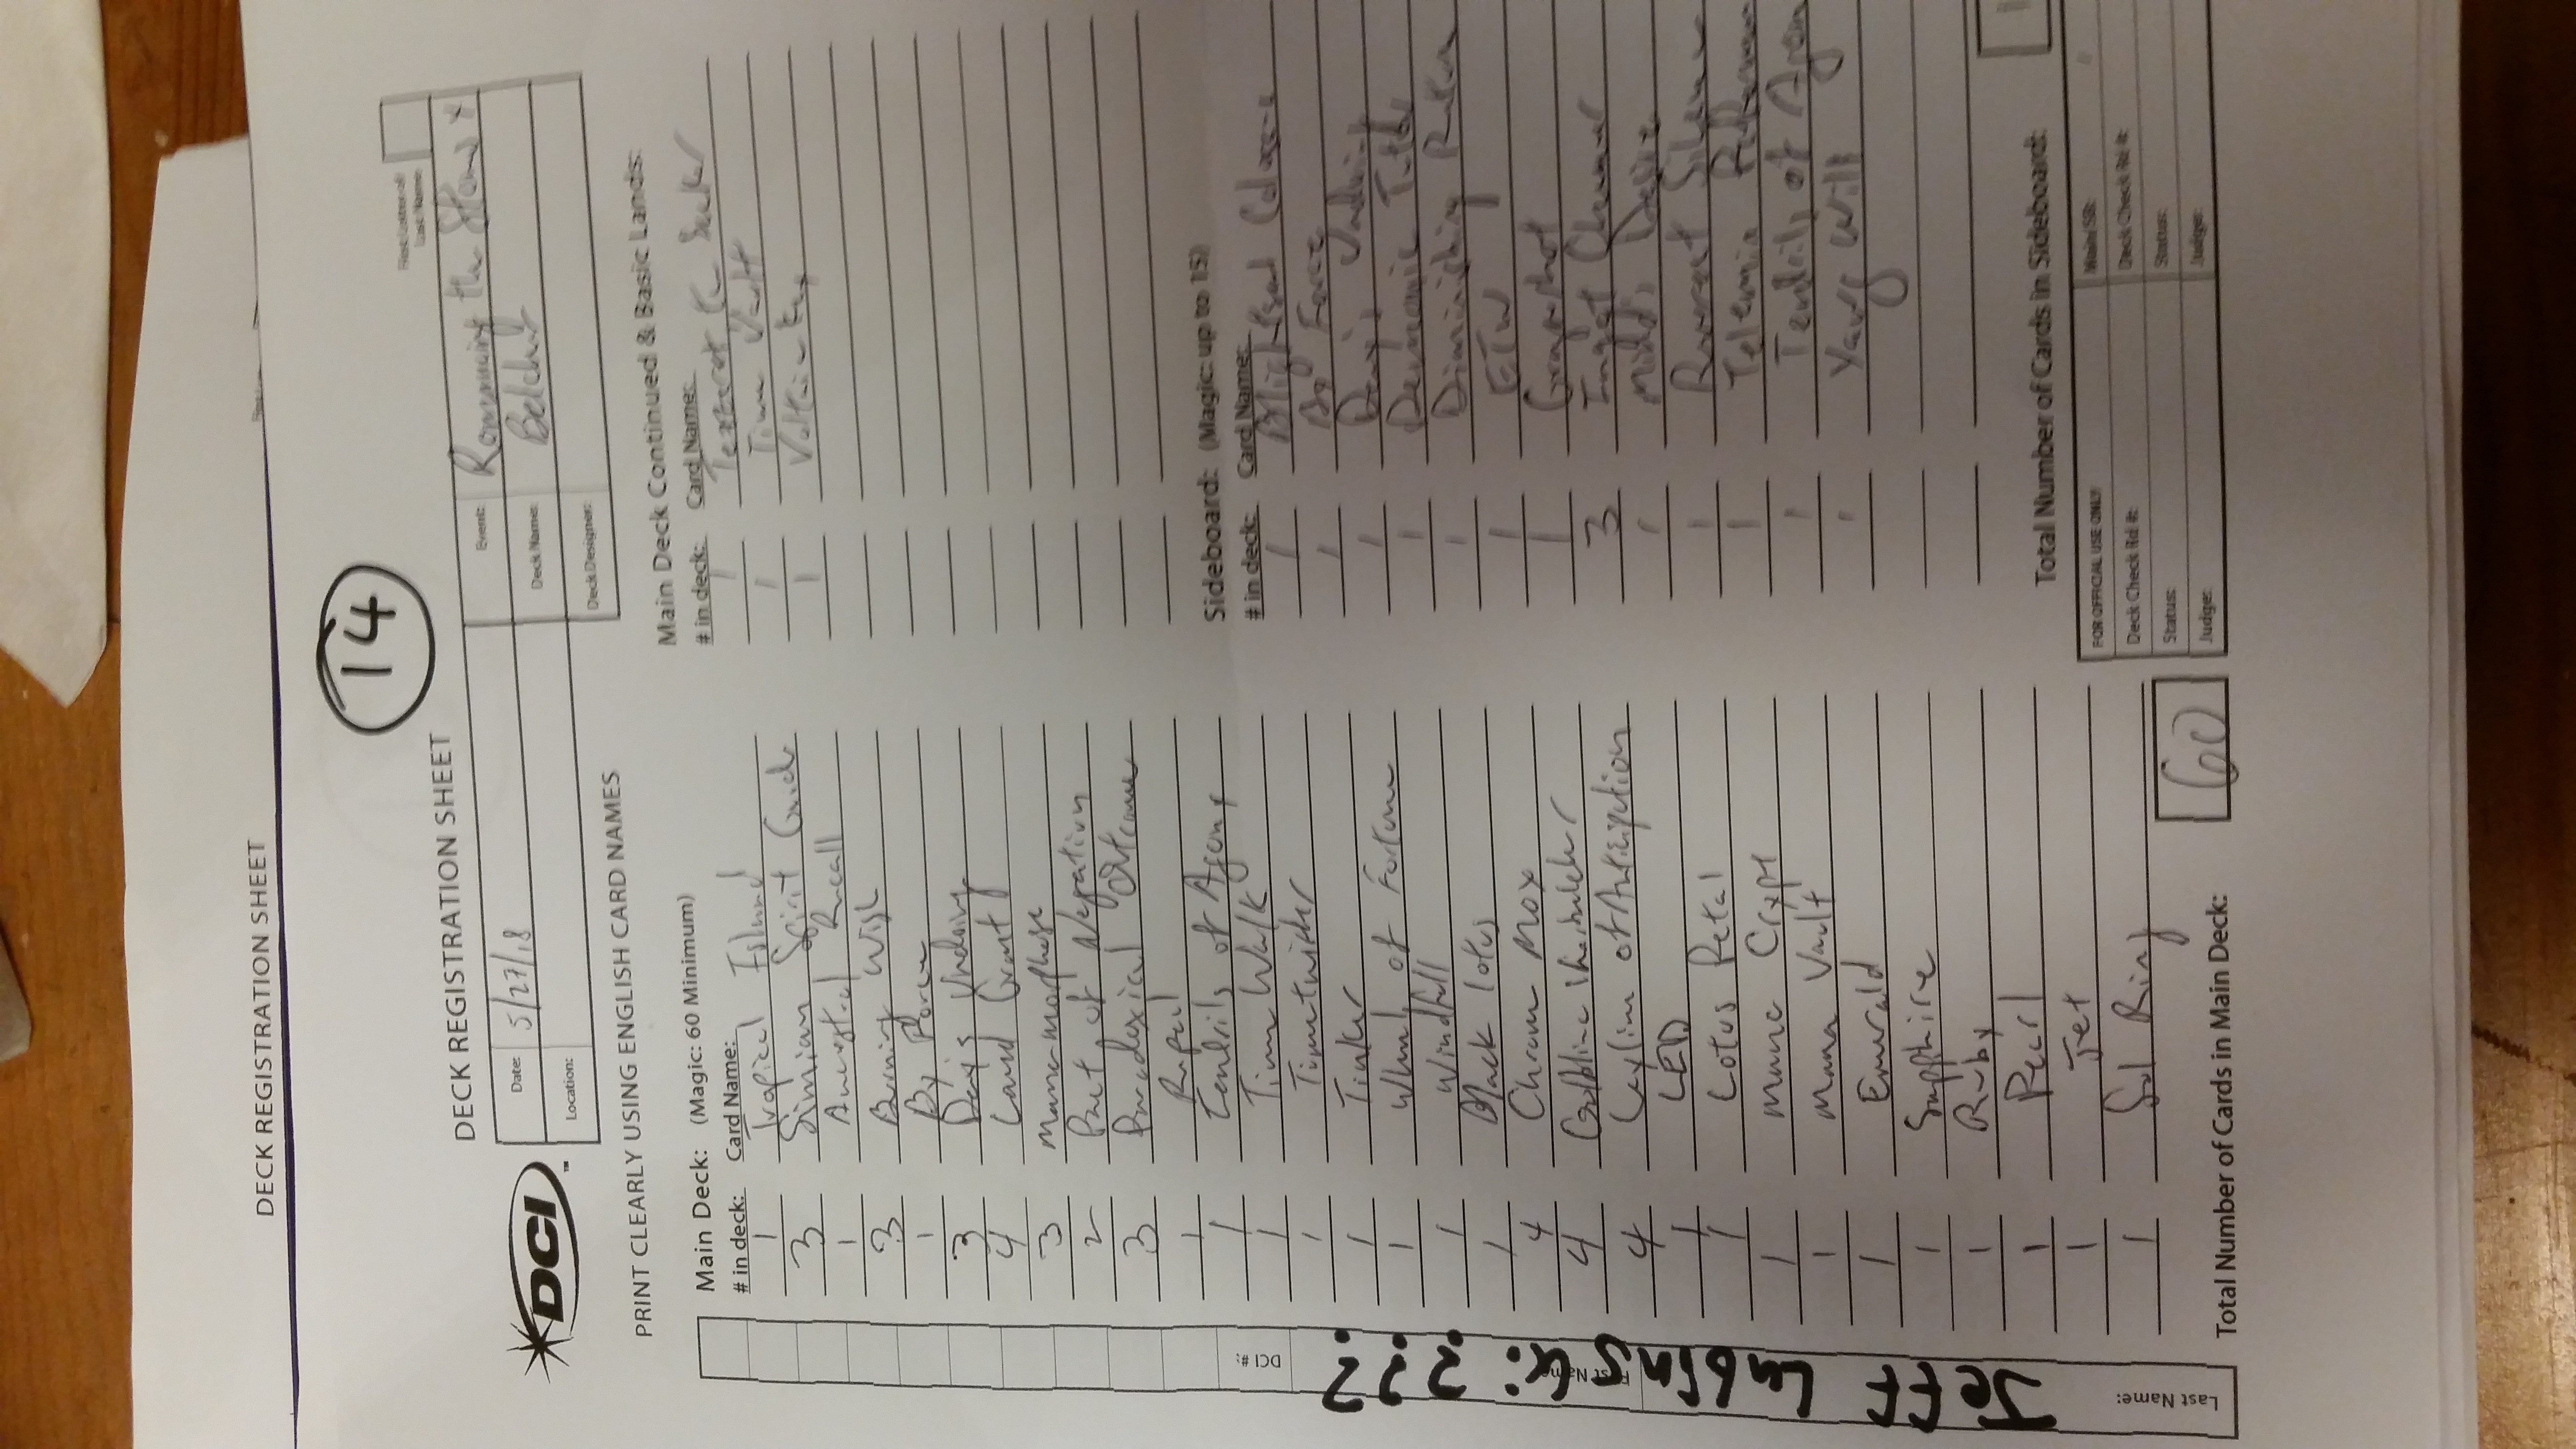 DECK REGISTRATION SHEET
14
First Letter of
Last Name:
DECK REGISTRATION SHEET
DCI
Date: 5/27/18
Location:
Event: Romancing the Stones X
Deck Name: Belcher
Deck Designer:
PRINT CLEARLY USING ENGLISH CARD NAMES
Main Deck: (Magic: 60 Minimum)
# in deck: Card Name:
1 Tropical Island
3 Simian Spirit Guide
1 Ancestral Recall
3 Burning Wish
1 By Force
3 Day's Undoing
4 Land Grant
3 Manamorphose
2 Pact of Negation
3 Paradoxical Outcome
1 Repeal
1 Tendrils of Agony
1 Time Walk
1 Timetwister
1 Tinker
1 Wheel of Fortune
1 Windfall
1 Black Lotus
4 Chrome Mox
4 Goblin Charbelcher
4 Leyline of Anticipation
1 LED
1 Lotus Petal
1 Mana Crypt
1 Mana Vault
1 Emerald
1 Sapphire
1 Ruby
1 Pearl
1 Jet
1 Sol Ring
Total Number of Cards in Main Deck: 60
Main Deck Continued & Basic Lands:
# in deck: Card Name:
1 Tezzeret the Seeker
1 Time Vault
1 Voltaic Key
Sideboard: (Magic: up to 15)
# in deck: Card Name:
1 Blightsteel Colossus
1 By Force
1 Day's Undoing
1 Demonic Tutor
1 Diminishing Returns
1 ETW
1 Grapeshot
3 Ingot Chewer
1 Mind's Desire
1 Reverent Silence
1 Telemin Performance
1 Tendrils of Agon
1 Yawg Will
Total Number of Cards in Sideboard:
FOR OFFICIAL USE ONLY
Main/SB:
Deck Check Rd #:
Deck Check Rd #:
Status:
Status:
Judge:
Judge:
DCI #:
First Name:
Last Name:
Jeff Lubinski ???